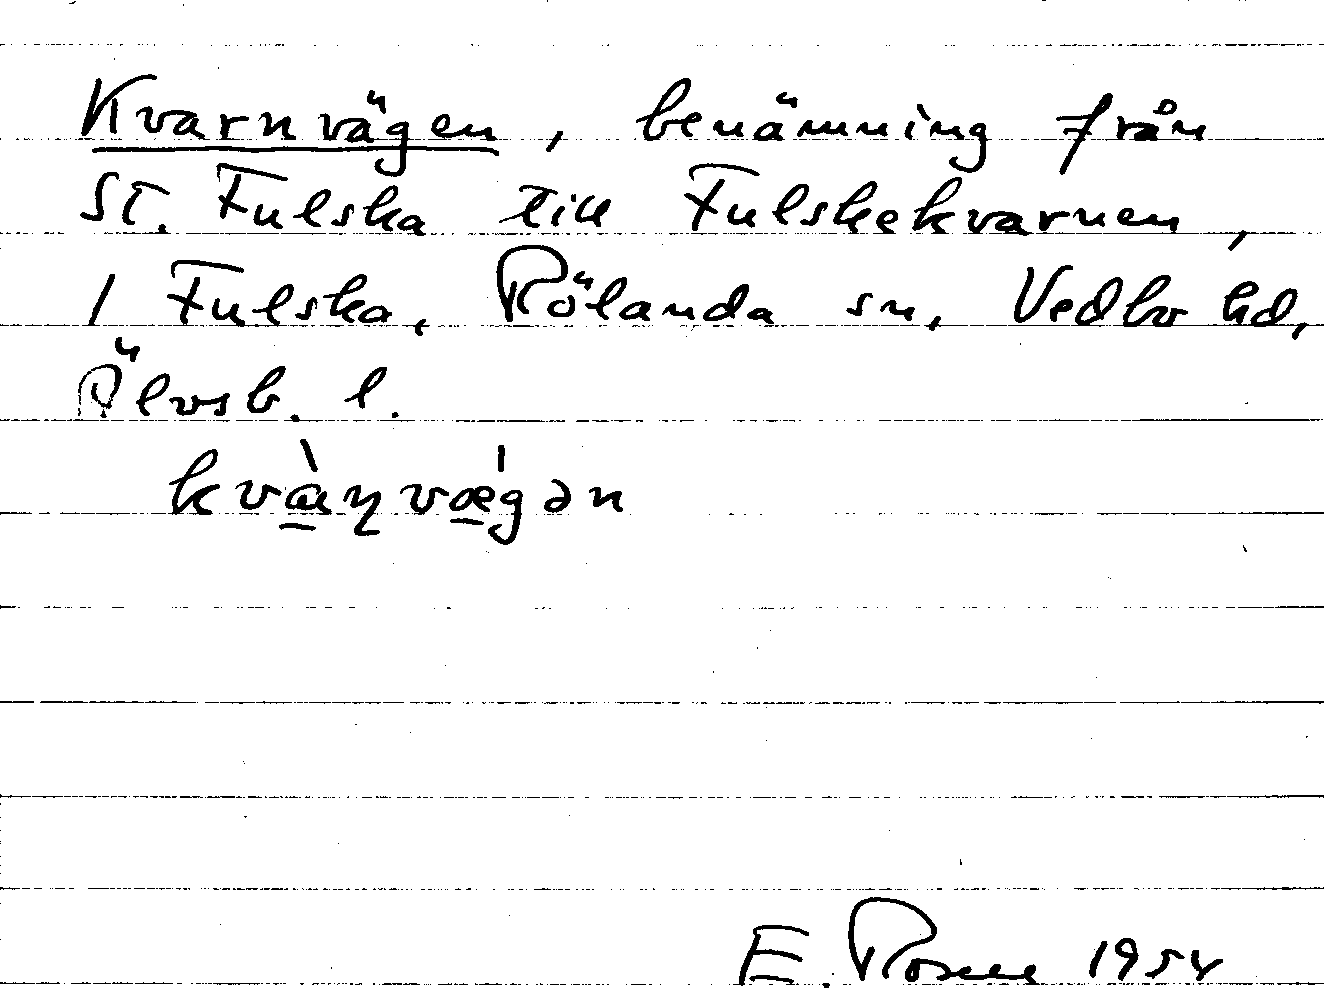 Kvarnvägen, benämning från
St. Fulska till Fulskekvarnen,
i Fulska, Rölanda sn, Vedbo hd,
Älvsb. l.
kvàɳvǽgən
E. Rosell 1954